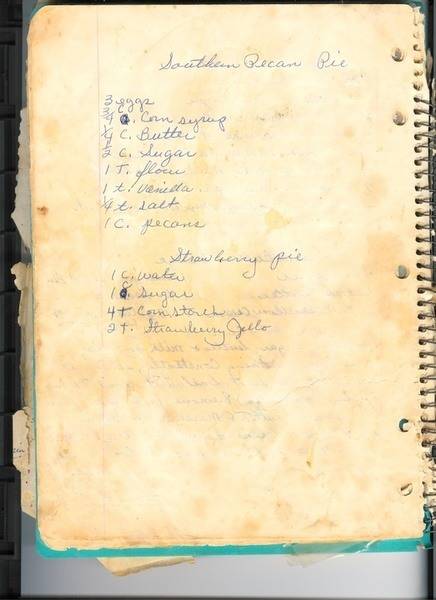 Southern Pecan Pie
3 eggs
3/4 C. Corn syrup
1/4 C. Butter
1/2 C. Sugar
1 T. flour
1 t. Vanilla
1/4 t. Salt
1 C. pecans
Strawberry pie
1 C. water
1 C Sugar
4 T Corn Starch
2 T. Strawberry Jello